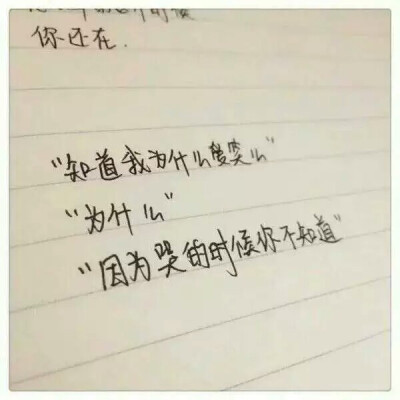 的时候
你还在.
"知道我为什么爱笑么"
"为什么"
"因为哭的时候你不知道"